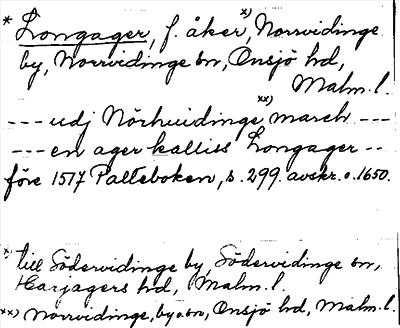 * Longager, f. åker x), Norrvidinge
by, Norrvidinge sn, Onsjö hd,
Malm. l.
--- udj Nörhuidinge xx) march ---
--- en ager kalliss Longager --
före 1517 Palteboken, s. 299. avskr. o. 1650.
x) till Södervidinge by, Södervidinge sn,
Harjagers hd, Malm. l.
xx) Norrvidinge, by o. sn, Onsjö hd, Malm. l.